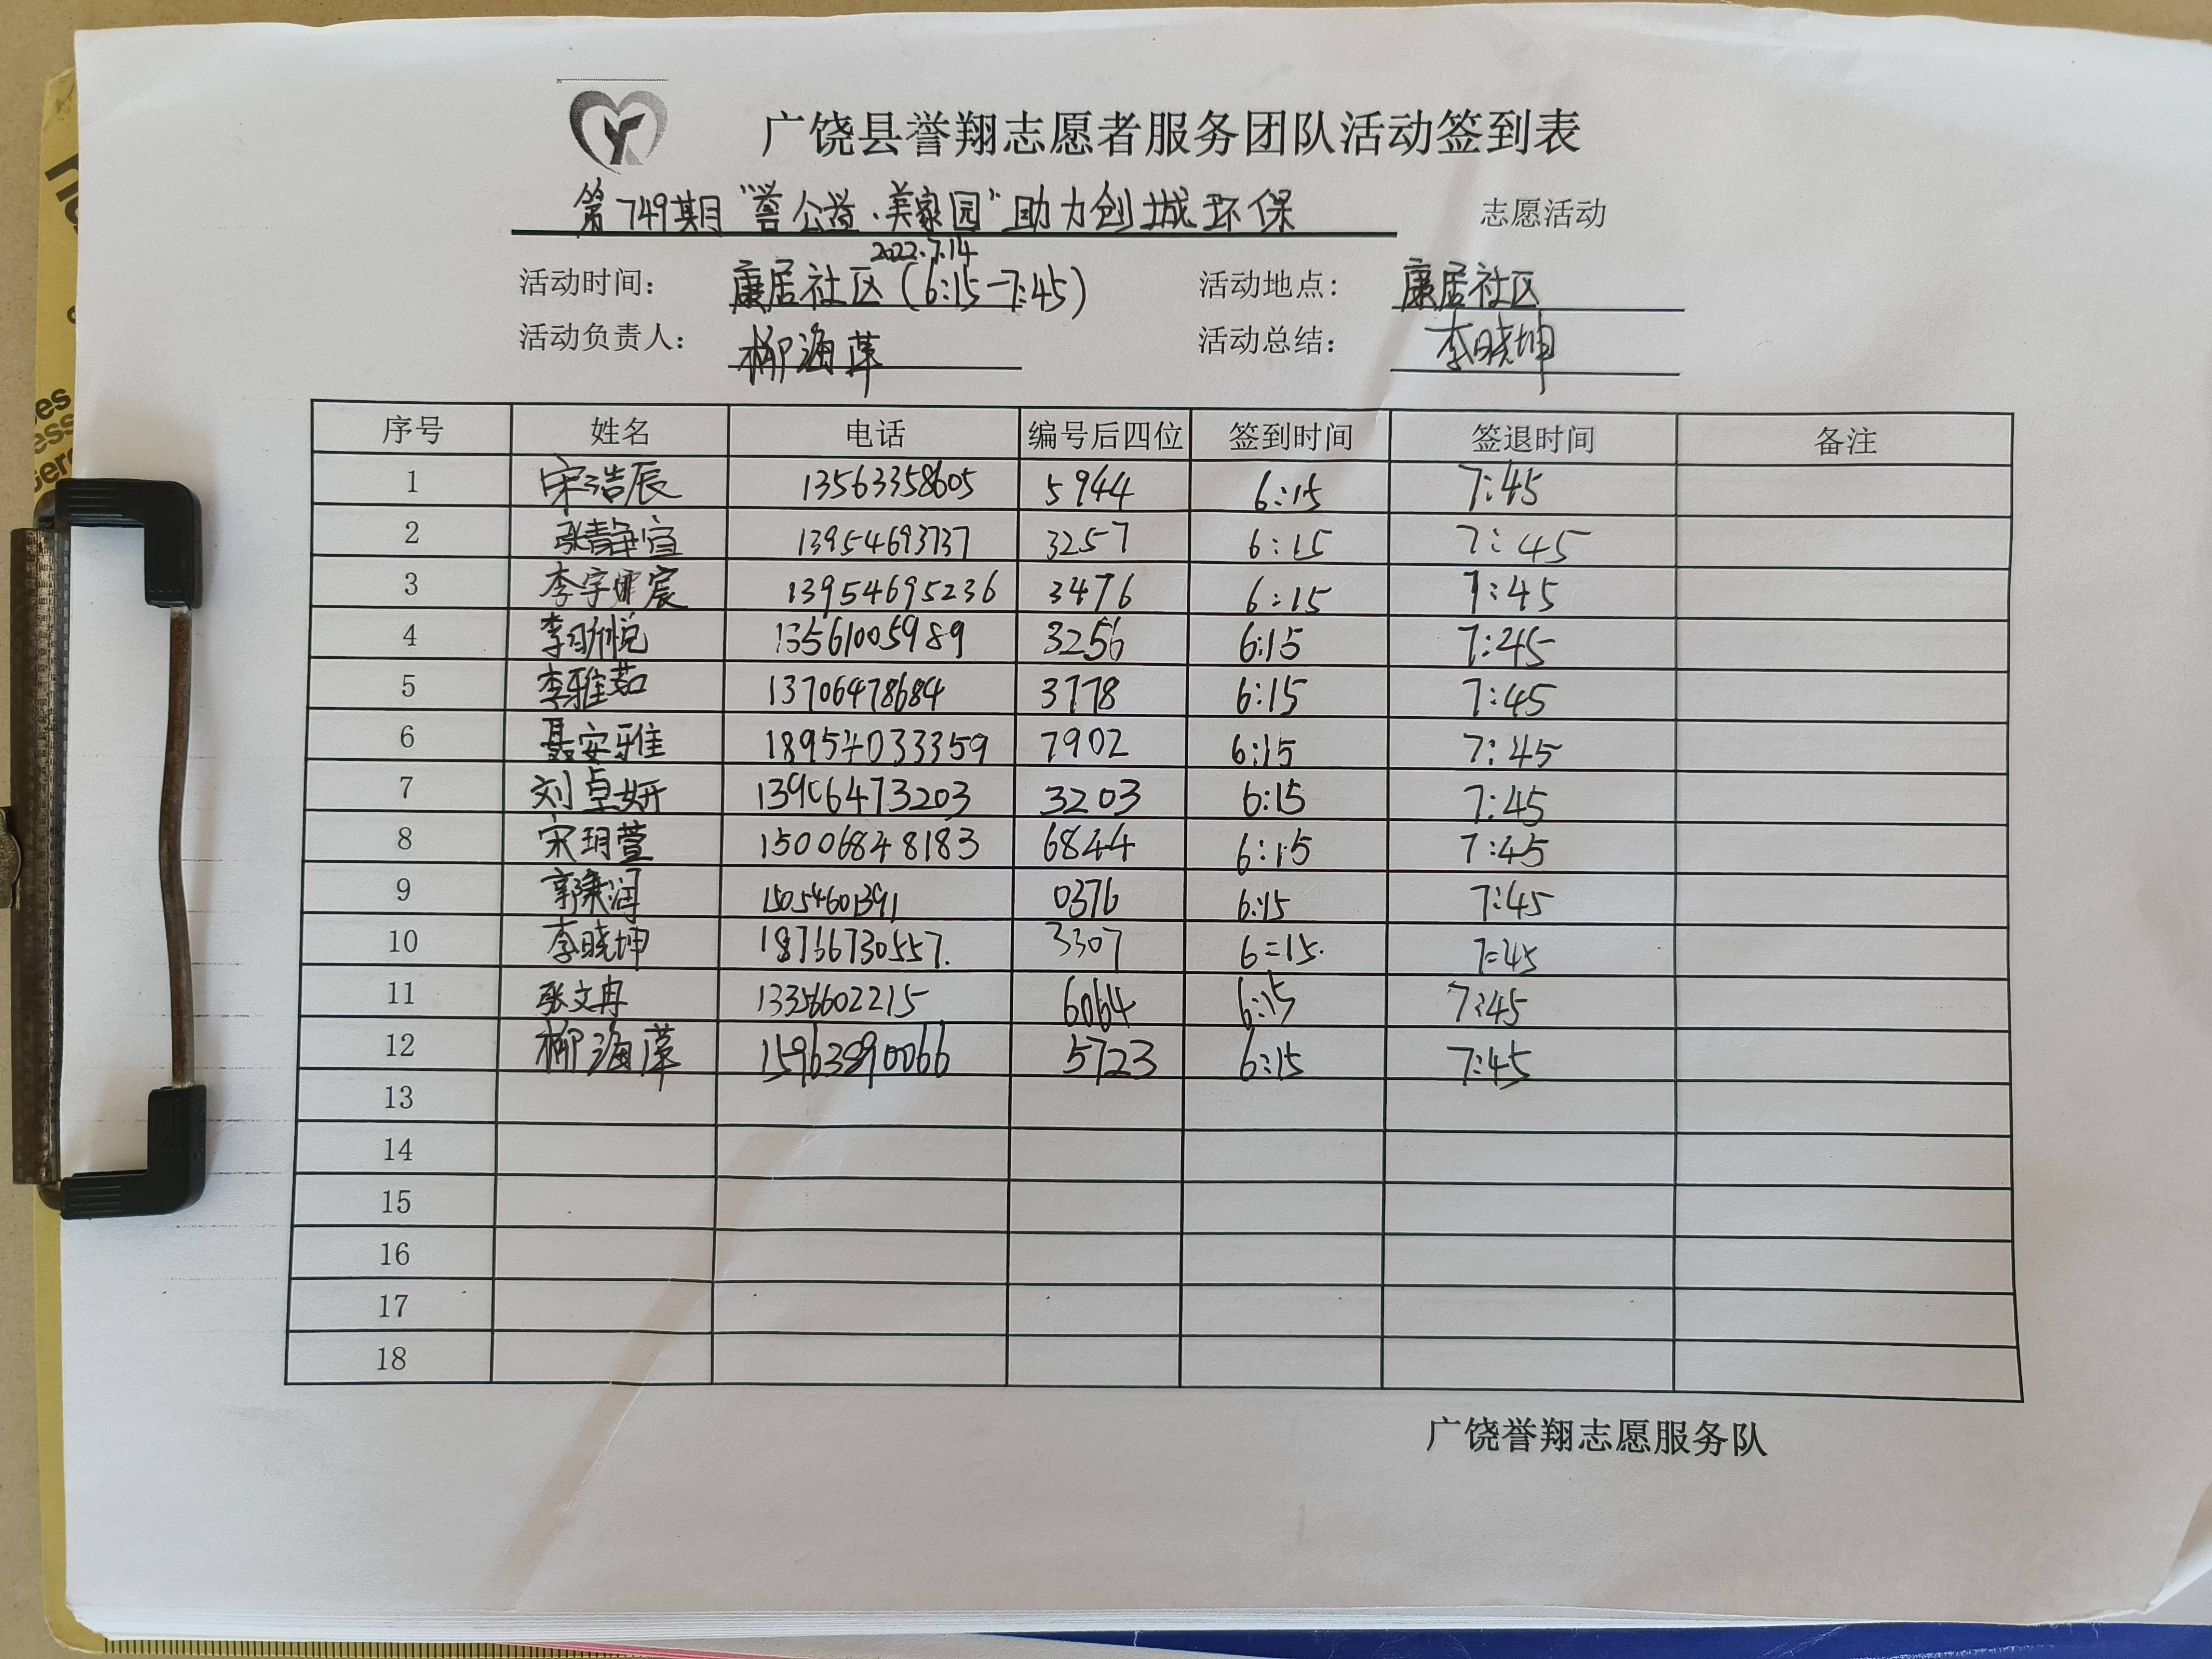 广饶县誉翔志愿者服务团队活动签到表
第749期"誉公益·美家园"助力创城环保 志愿活动
2022.7.14
活动时间: 康居社区(6:15-7:45) 活动地点: 康居社区
活动负责人: 柳海萍 活动总结: 李晓坤
序号 姓名 电话 编号后四位 签到时间 签退时间 备注
1 宋浩辰 13563358605 5944 6:15 7:45
2 张静宜 13954693737 3257 6:15 7:45
3 李宇宸 13954695236 3476 6:15 7:45
4 李昕悦 13561005989 3256 6:15 7:45
5 李雅茹 13706478684 3778 6:15 7:45
6 聂安雅 18954033359 7902 6:15 7:45
7 刘卓妍 13906473203 3203 6:15 7:45
8 宋玥萱 15006848183 6844 6:15 7:45
9 郭润 15054601391 0376 6:15 7:45
10 李晓坤 18766730557. 3307 6=15. 7=45
11 张文冉 13356602215 6064 6:15 7:45
12 柳海萍 15963890066 5723 6:15 7:45
13
14
15
16
17
18
广饶誉翔志愿服务队